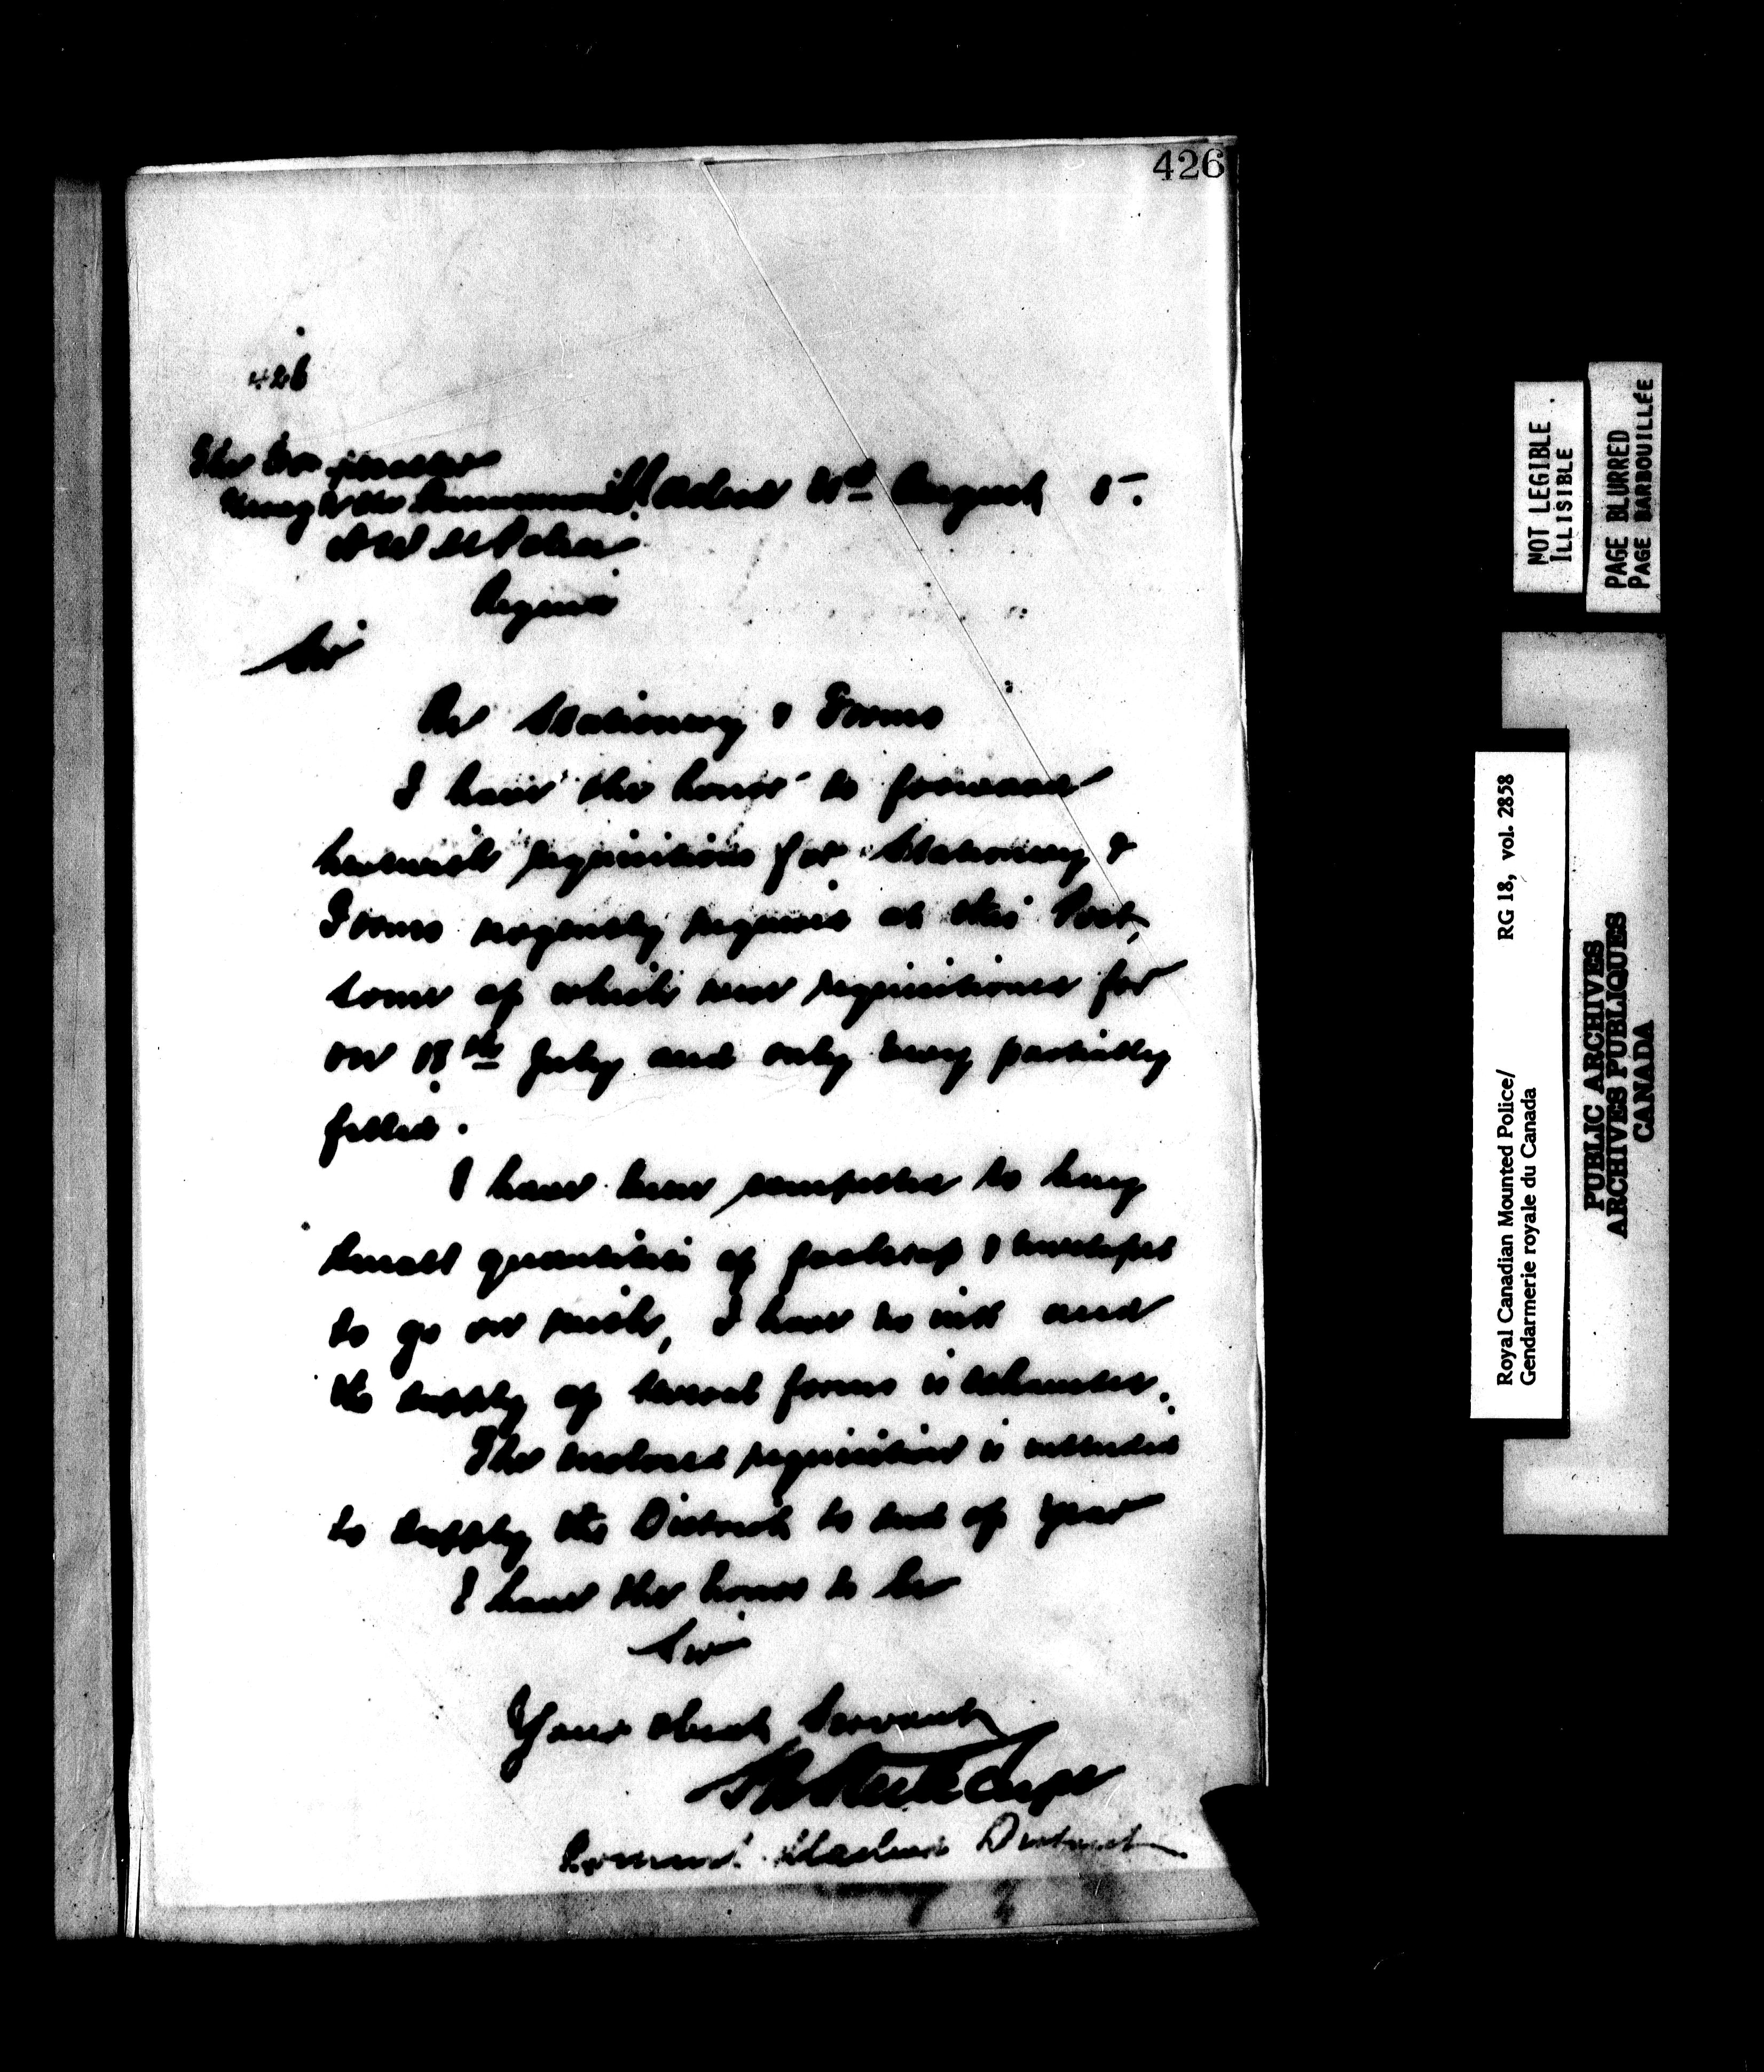 426
426
The
Macleod August 5.
N W M Police
Regina
Sir
Re Stationery & Forms
I have the honor to forward
herewith requisitions for Stationery &
Forms urgently required at this Post,
some of which were requisitioned for
on 18th July and only very partially
filled.
I have been compelled to buy
small quantities of foolscap & envelopes
to go on with, I have no ink and
the supply of several forms is exhausted.
The enclosed requisition is intended
to supply the District to end of year
I have the honor to be
Sir
Your obedt Servant
Supt
Command. Macleod District
NOT LEGIBLE
ILLISIBLE
PAGE BLURRED
PAGE BARBOUILLÉE
Royal Canadian Mounted Police/ RG 18, vol. 2858
Gendarmerie royale du Canada
PUBLIC ARCHIVES
ARCHIVES PUBLIQUES
CANADA